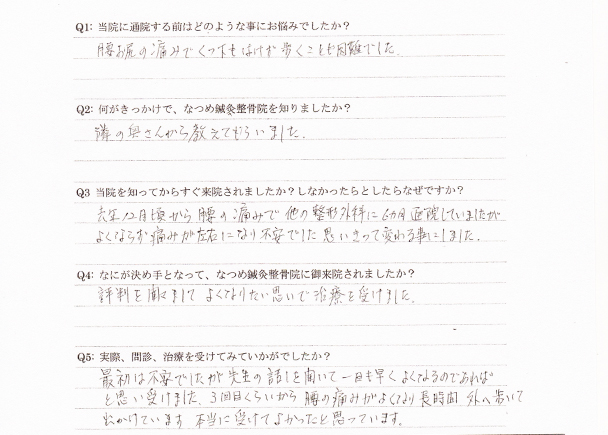 Q1: 当院に通院する前はどのような事にお悩みでしたか？
腰お尻の痛みでくつ下もはけず歩くことも困難でした。
Q2: 何がきっかけで、なつめ鍼灸整骨院を知りましたか？
隣の奥さんから教えてもらいました。
Q3 当院を知ってからすぐ来院されましたか？しなかったらとしたらなぜですか？
去年12月頃から腰の痛みで他の整形外科に6カ月通院していましたが
よくならず痛みが左右になり不安でした 思いきって変わる事にしました。
Q4: なにが決め手となって、なつめ鍼灸整骨院に御来院されましたか？
評判を聞きまして よくなりたい思いで治療を受けました。
Q5: 実際、問診、治療を受けてみていかがでしたか？
最初は不安でしたが先生の話しを聞いて一日も早くよくなるのであれば
と思い受けました。3回目くらいから腰の痛みがよくなり長時間外へ歩いて
出かけています 本当に受けてよかったと思っています。